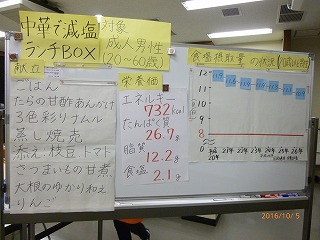 中華で減塩
ランチBOX
対象
成人男性
(20~60歳)
献立
ごはん
たらの甘酢あんかけ
3色彩りナムル
蒸し焼売
添え 枝豆 トマト
さつまいもの甘煮
大根のゆかり和え
りんご
栄養価
エネルギー
732kcal
たんぱく質
26.7g
脂質
12.2g
食塩
2.1g
食塩摂取量の状況
12
11
10
9
8
0
平成
20年
21年
22年
23年
24年
25年
26年
2016/10/5